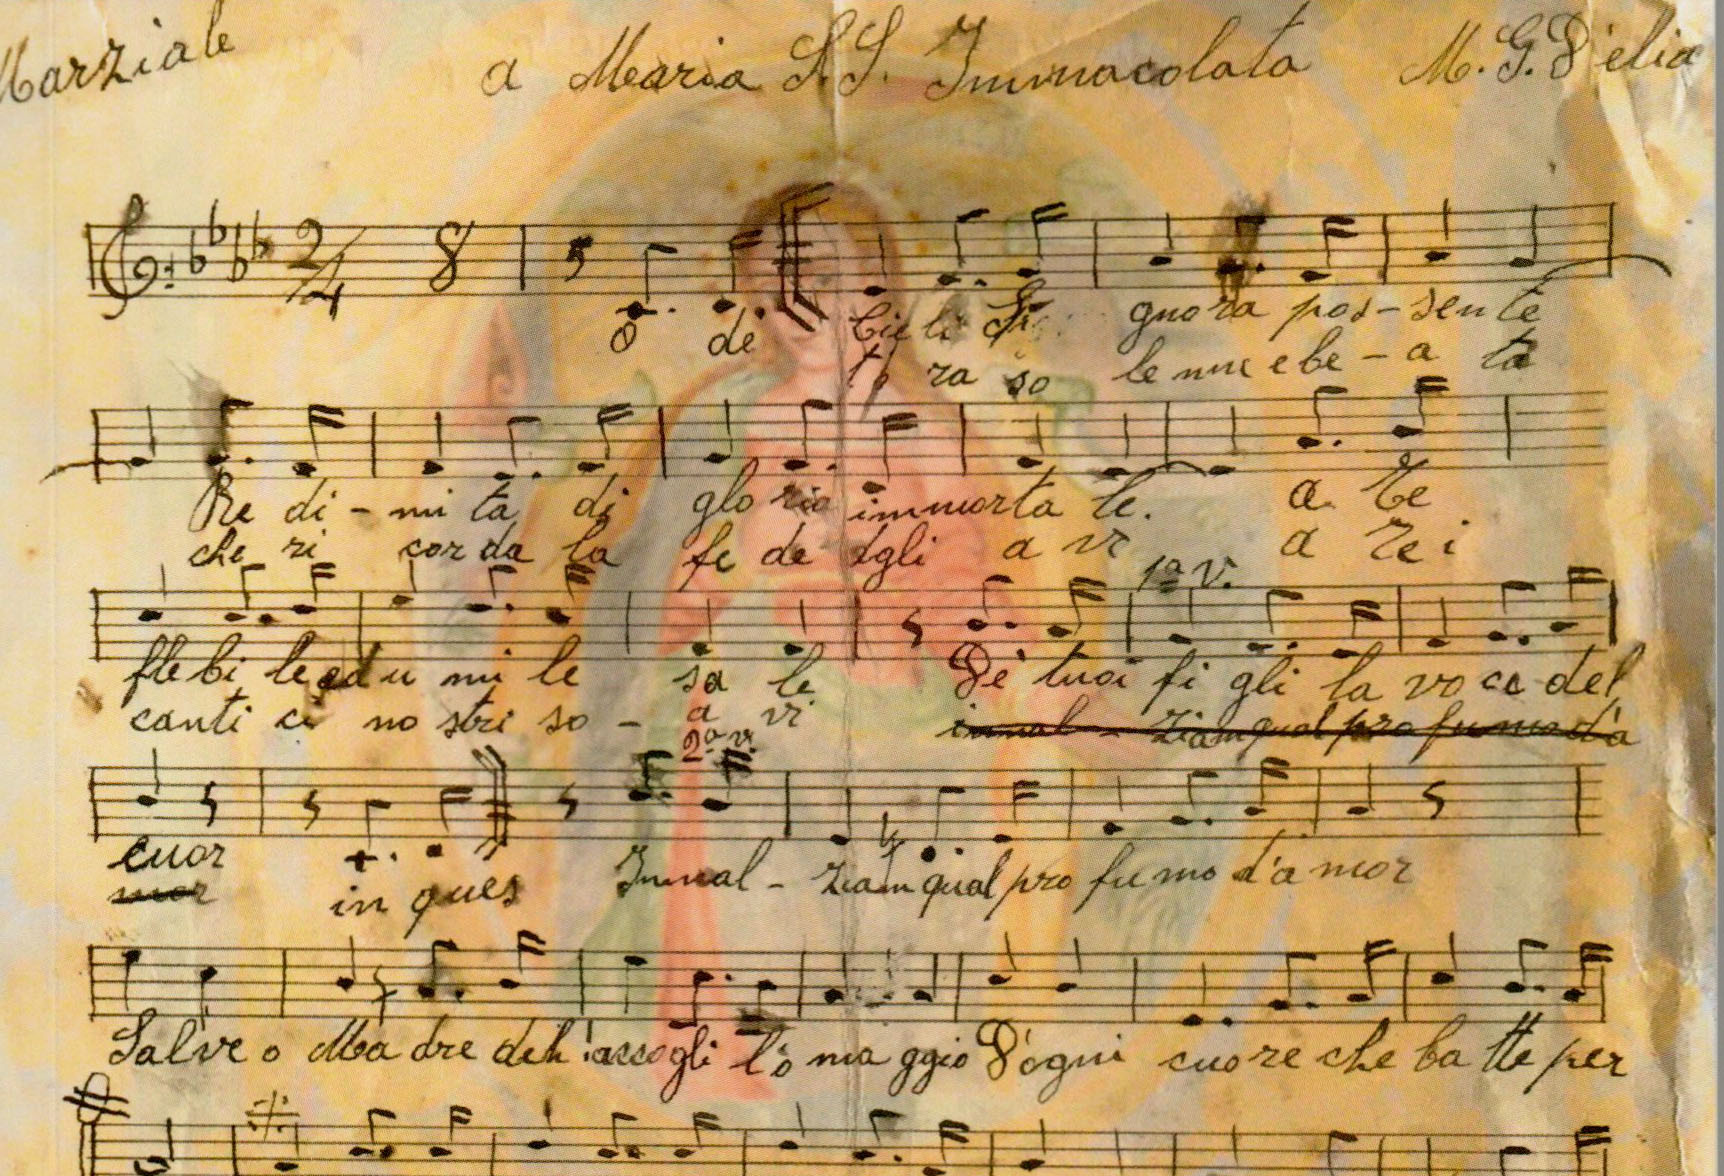 Marziale a Maria S.S. Immacolata M. G. D'elia
2/4 8
O de Cieli Si gnora pos-sen te
ra so le nne e be-a ta
Re di-mi ta di glo ria immorta le. a te
che ri corda la fe de degli a vi a Lei
1a V.
flebi le ed u mi le sa le De' tuoi fi gli la vo ce del
canti ci no stri so-a vi innal-ziam qual pro fumo d'a
2a v.
cuor Innal-ziam qual pro fu mo d'a mor
mor in ques
Salve o Ma dre deh! accogli l'o ma ggio D'ogni cuore che ba tte per